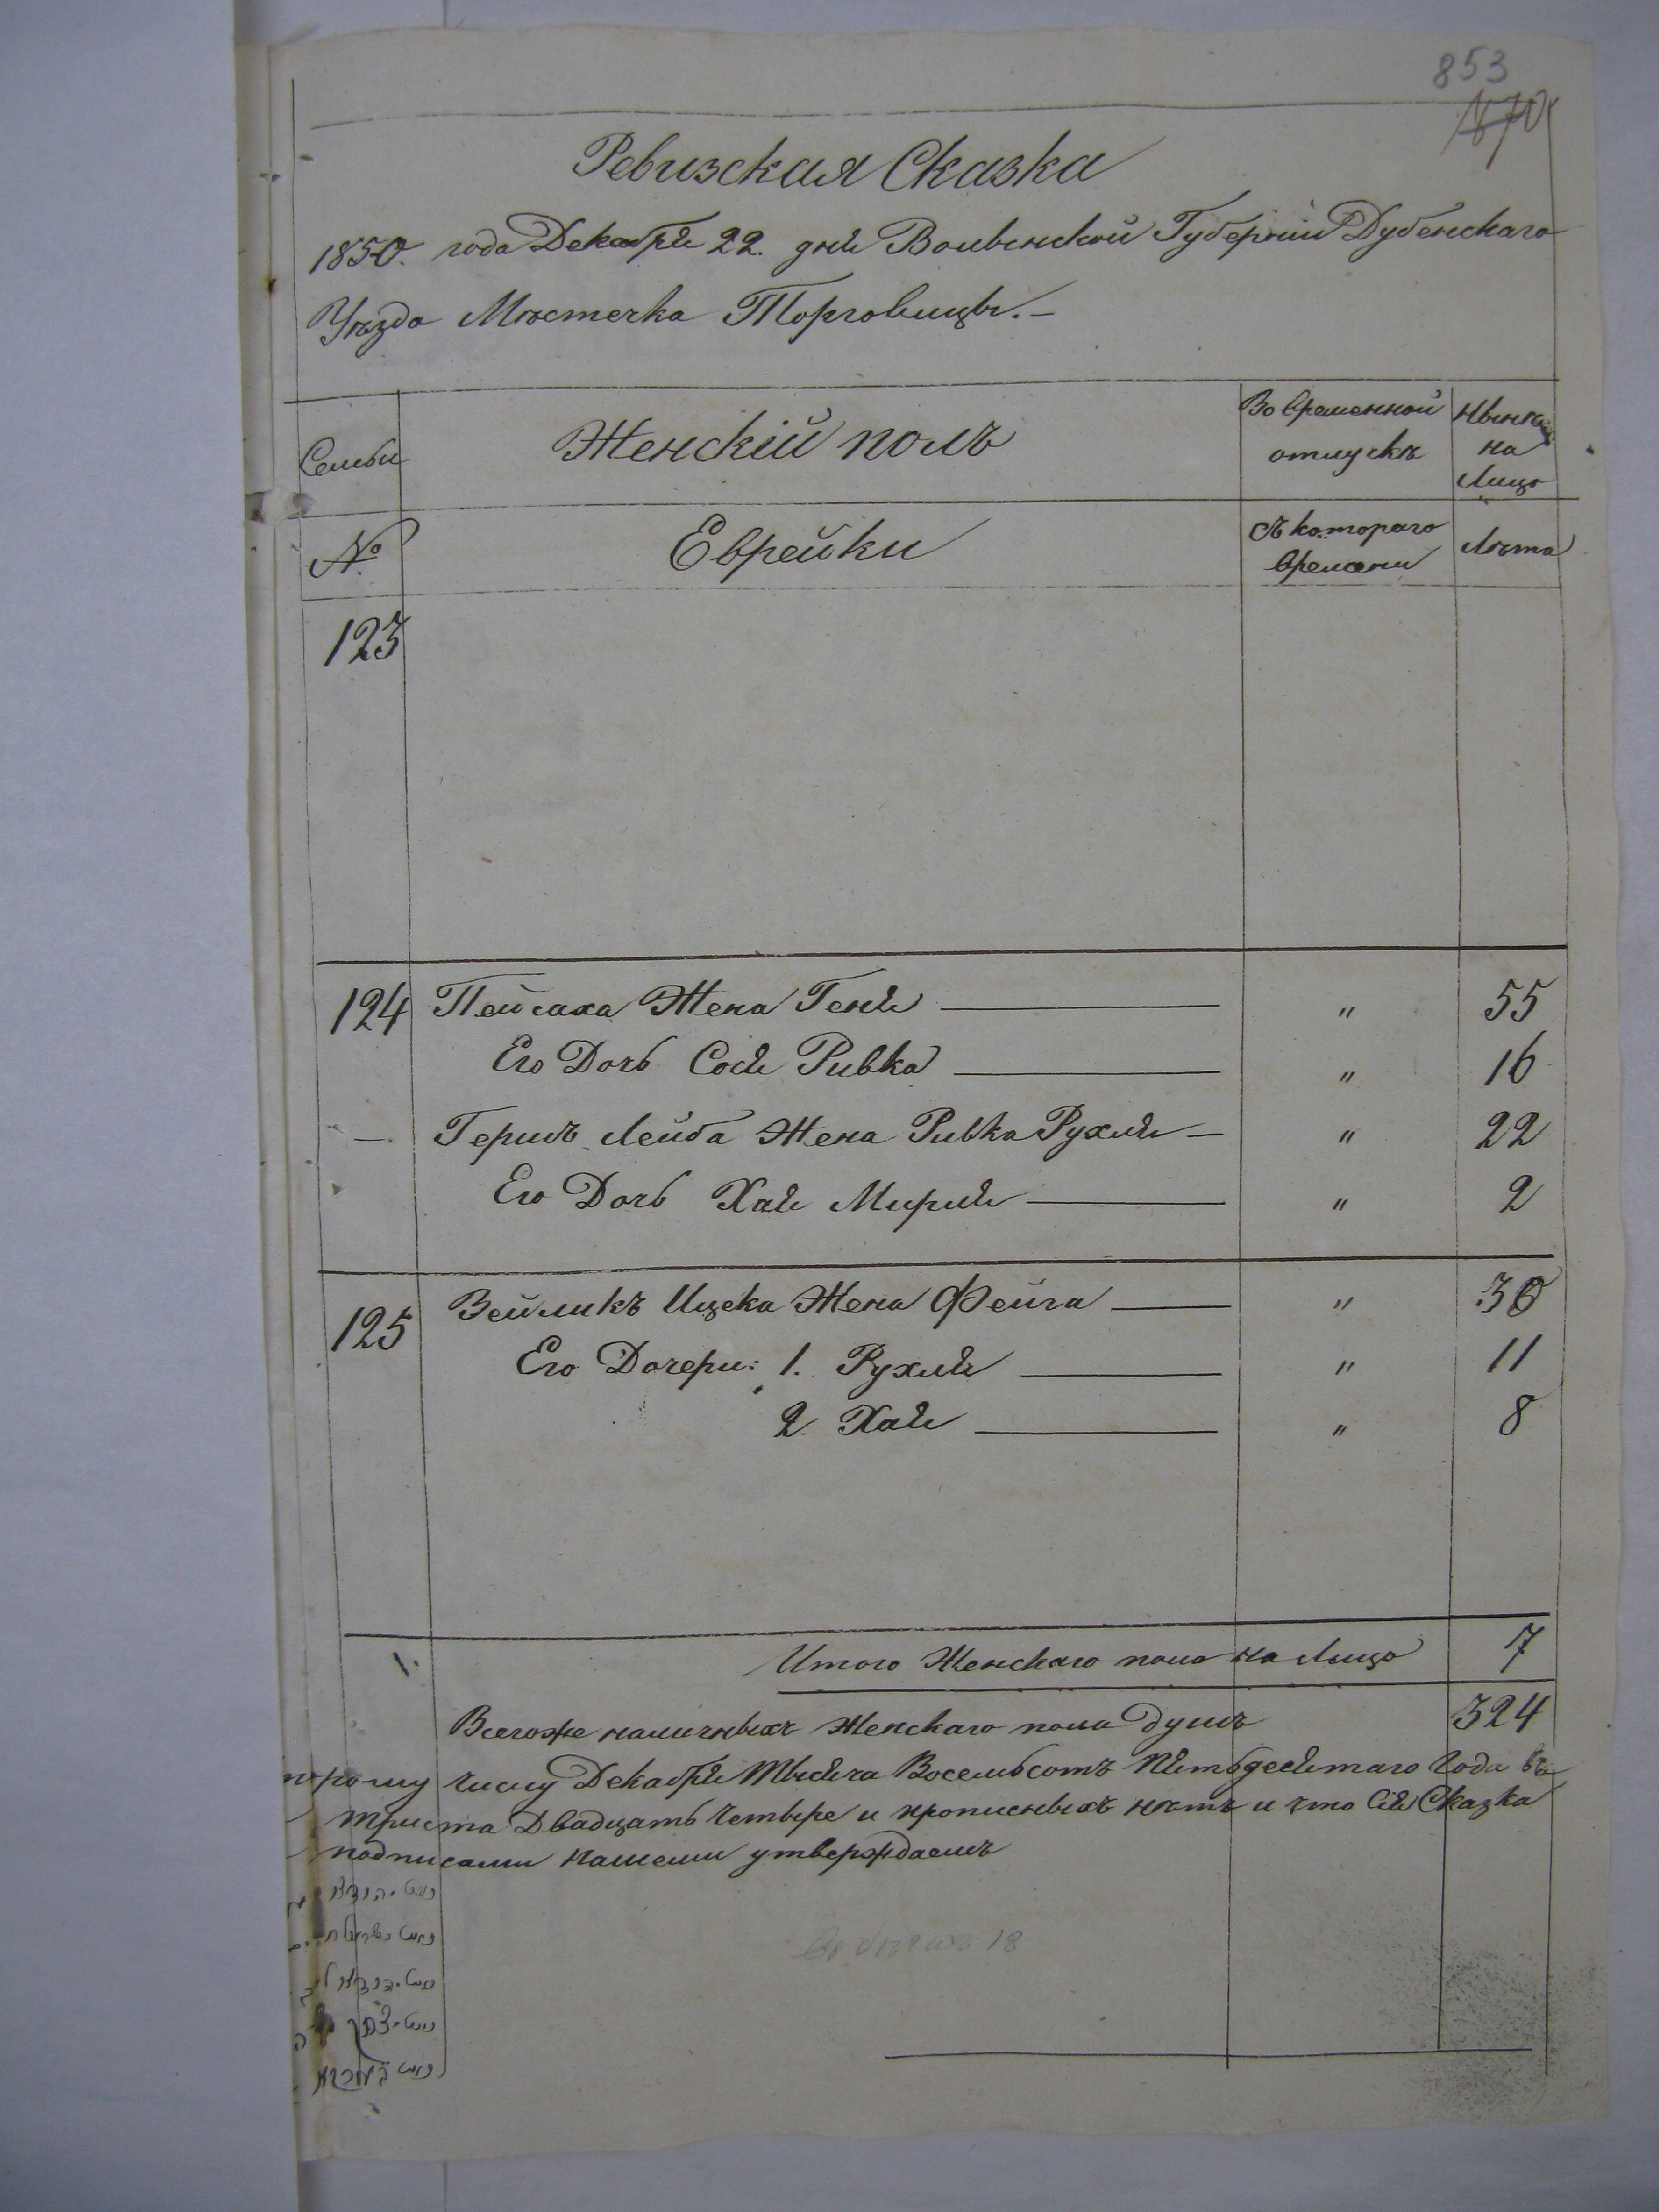 853
Ревизская Сказка
1850. года Декабря 22. дня Волынской Губерніи Дубенскаго
Уѣзда Мѣстечка Торговицы. —
Семьи
Женскій полъ
Во временной отлучкѣ
Нынѣ на Лицо
№
Еврейки
Съ котораго времени
Лѣта
123
124 Пейсаха Жена Геня — " 55
Его Дочь Сося Ривка — " 16
— Гершъ Лейба Жена Ривка Рухля — " 22
Его Дочь Хая Миріля — " 2
125 Зейликъ Ицека Жена Фейга — " 30
Его Дочери: 1. Рухля — " 11
2 Хая — " 8
Итого Женскаго пола на Лицо 7
Всегоже наличныхъ Женскаго пола душъ 324
числу Декабря Тысяча Восемьсотъ Пятьдесятаго Года
триста Двадцать Четыре и прописныхъ нѣтъ и что Сія Сказка
подписами нашеми утверждаемъ